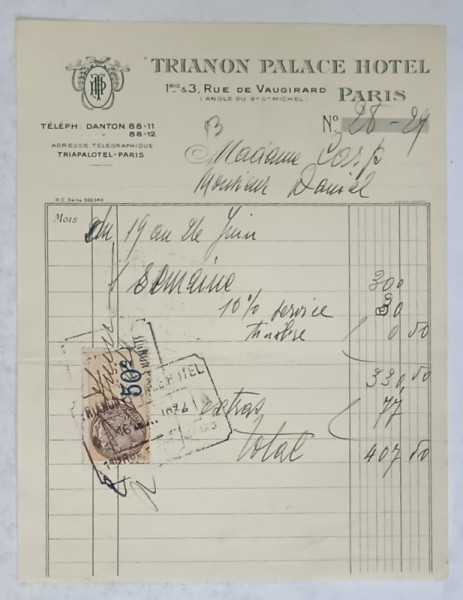 TPH
TRIANON PALACE HOTEL
1BIS & 3, RUE DE VAUGIRARD
(ANGLE DU Bd St MICHEL)
PARIS
TÉLÉPH: DANTON 88-11
" 88-12
ADRESSE TÉLÉGRAPHIQUE
TRIAPALOTEL-PARIS
No. 28-29
Madame
Monsieur Daniel
R.C. Seine
Mois
du 19 au 26 Juin
1 semaine 300
10% service 30
timbre 0 50
330 50
extras 77
Total 407 50
50c
HOTEL